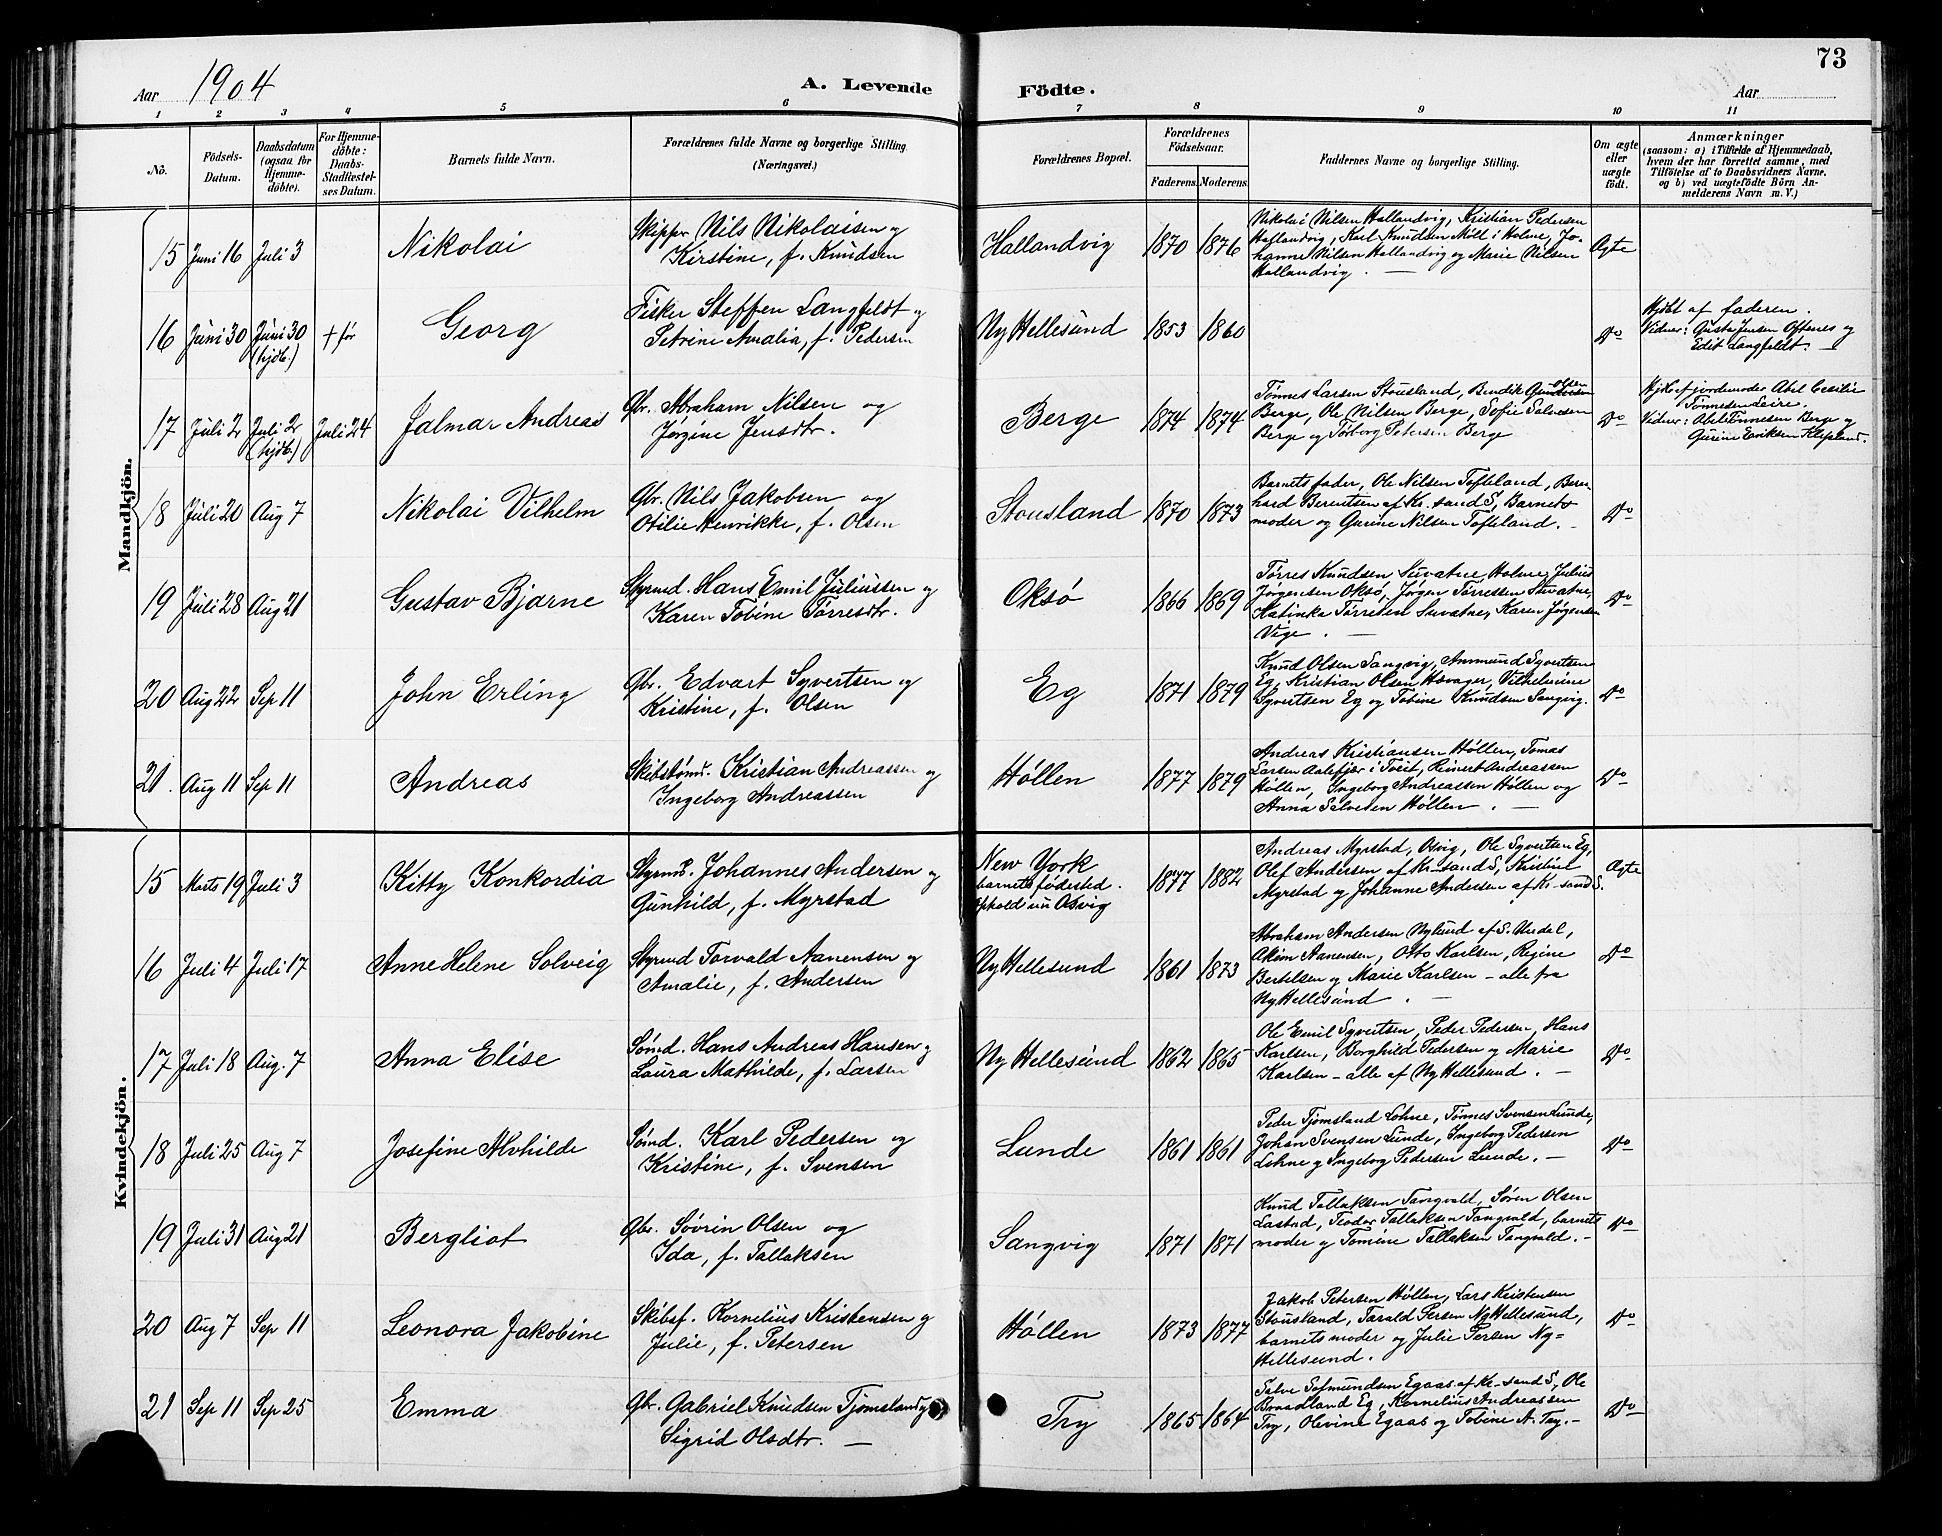 73
Aar 1904
A. Levende
Födte.
Aar
1 2 3 4 5 6 7 8 9 10 11
No.
Födsels-Datum.
Daabsdatum (ogsaa for Hjemme-döbte).
For Hjemme-döbte: Daabs-Stadfæstel-ses Datum.
Barnets fulde Navn.
Forældrenes fulde Navne og borgerlige Stilling.
(Næringsvei.)
Forældrenes Bopæl.
Forældrenes Födselsaar.
Faderens. Moderens.
Faddernes Navne og borgerlige Stilling.
Om ægte eller uægte födt.
Anmærkninger
(saasom: a) i Tilfælde af Hjemmedaab,
hvem der har forrettet samme, med
Tilföielse af to Daabsvidners Navne,
og b) ved uægtefödte Börn An-
melderens Navn m. V.)
Mandkjön.
15 Juni 16 Juli 3 Nikolai
Skipper Nils Nikolaisen og
Kirstine, f. Knudsen
Hallandvig 1870 1876
Nikolai Nilsen Hallandvig, Kristian Pedersen
Hallandvig, Karl Knudsen Möll i Holme, Jo-
hanne Nilsen Hallandvig og Marie Nilsen
Hallandvig. —
Ægte
16 Juni 30 Juni 30 (hjdb.) + før Georg
Fisker Steffen Langfeldt og
Petrine Amalia, f. Pedersen
Ny Hellesund 1853 1860
Do
Hjdbt af faderen.
Vidner: Gusta Jensen Oftenes og
Edit Langfeldt. —
17 Juli 2 Juli 2 (hjdb.) Juli 24 Jalmar Andreas
Gbr. Abraham Nilsen og
Jørgine Jensdtr.
Berge 1874 1874
Tønnes Larsen Stousland, Bendik Olsen
Berge, Ole Nilsen Berge, Sofie Salvesen
Berge og Torborg Petersen Berge
Do
Hjdb. af jordemoder Abel Cecilie
Tønnesen Leire.
Vidner: Abel Tønnesen Berge og
Gurine Eriksen Klepland.
18 Juli 20 Aug 7 Nikolai Vilhelm
Gbr. Nils Jakobsen og
Otilie Henrikke, f. Olsen
Stousland 1870 1873
Barnets fader, Ole Nilsen Tofteland, Bern-
hard Berentsen af Kr.sand S, Barnets
moder og Gurine Nilsen Tofteland. —
Do
19 Juli 28 Aug 21 Gustav Bjarne
Styrmd. Hans Emil Juliussen og
Karen Tobine Tørresdtr.
Oksø 1866 1869
Tørres Knudsen Suvatne, Holme, Julius
Jørgensen Oksø, Jørgen Tørressen Suvatne,
Katinka Tørresen Suvatne, Karen Jørgensen
Vige. —
Do
20 Aug 22 Sep 11 John Erling
Gbr. Edvart Syvertsen og
Kristine, f. Olsen
Eg 1871 1879
Knud Olsen Sangvig, Anmund Syvertsen
Eg, Kristian Olsen Havager, Vilhelmine
Syvertsen Eg og Tobine Knudsen Sangvig.
Do
21. Aug 11 Sep 11 Andreas
Skibstømr. Kristian Andreassen og
Ingeborg Andreassen
Høllen 1877 1879
Andreas Kristiansen Høllen, Tomas
Larsen Aalefjær i Tveit, Reinert Andreassen
Høllen, Ingeborg Andreassen Høllen og
Anna Salvesen Høllen. —
Do
Kvindekjön.
15 Marts 19 Juli 3 Kitty Konkordia
Styrmd. Johannes Andersen og
Gunhild, f. Myrstad
New York
barnets fødested.
ophold nu Osvig
1877 1882
Andreas Myrstad, Osvig, Ole Syvertsen Eg,
Olef Andersen af Kr.sand S, Kristine
Myrstad og Johanne Andersen af Kr.sand S.
Ægte
16 Juli 4 Juli 17 Anne Helene Solveig
Styrmd Torvald Aanensen og
Amalie, f. Andersen
Ny Hellesund 1861 1873
Abraham Andersen Nylund af S. Undal,
Akim Aanensen, Otto Karlsen, Regine
Bertelsen og Marie Karlsen – alle fra
Ny Hellesund. —
Do
17 Juli 18 Aug. 7 Anna Elise
Sømd. Hans Andreas Hansen og
Laura Mathilde, f. Larsen
Ny Hellesund 1862 1865
Ole Emil Syvertsen, Peder Pedersen, Hans
Karlsen, Borghild Pedersen og Marie
Karlsen – alle af Ny Hellesund. —
Do
18 Juli 25 Aug 7 Josefine Alvhilde
Sømd. Karl Pedersen og
Kristine, f. Svensen
Lunde 1861 1861
Peder Tjomsland Lohne, Tønnes Svensen Lunde,
Johan Svensen Lunde, Ingeborg Pedersen
Lohne og Ingeborg Pedersen Lunde. —
Do
19 Juli 31 Aug 21 Bergliot
Gbr. Søvrin Olsen og
Ida, f. Tallaksen
Sangvig 1871 1871
Knud Tallaksen Tangvald, Søren Olsen
Lastad, Teodor Tallaksen Tangvald, barnets
moder og Tomine Tallaksen Tangvald. —
Do
20 Aug 7 Sep 11 Leonora Jakobine
Skibsf. Kornelius Kristensen og
Julie, f. Petersen
Høllen 1873 1877
Jakob Petersen Høllen, Lars Kristensen
Stousland, Tarald Persen Ny Hellesund,
barnets moder og Julie Persen Ny-
Hellesund.
Do
21 Sep 11 Sep 25 Emma
Gbr. Gabriel Knudsen Tjomsland og
Sigrid Olsdtr. —
Try 1865 1864
Salve Salmundsen Egaas af Kr.sand S, Ole
Braadland Eg, Kornelius Andreassen
Try, Olevine Egaas og Tobine A. Try. —
Do